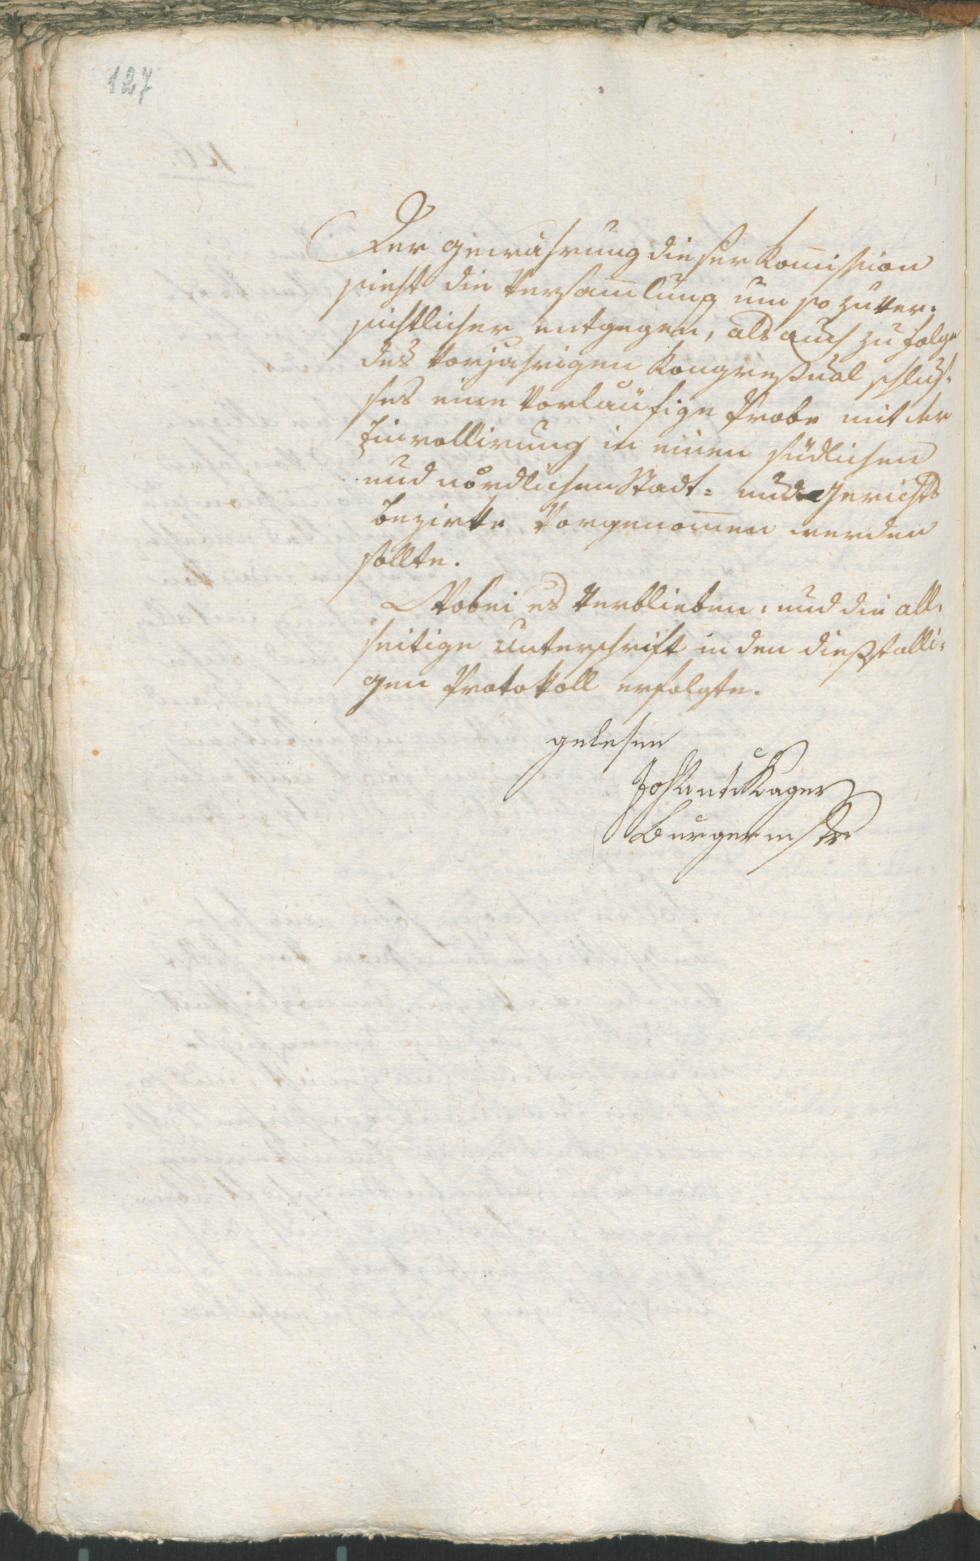 127
Der gewährung dieser Kom̅ission
sieht die Versam̅lung um so zuver-
sichtlicher entgegen, als auch zu folge
des vorjährigen Kongreßual schluß-
ses eine vorläufige Probe mit der
Einrollirung in einen südlichen
und nördlichen Stadt- und Gerichts
bezirke vorgenom̅en werden
sollte.
Wobei es verblieben, und die all-
seitige Unterschrift in den dießfalli-
gen Protokoll erfolgte.
gelesen
Joh Ant Kager
Burgermstr